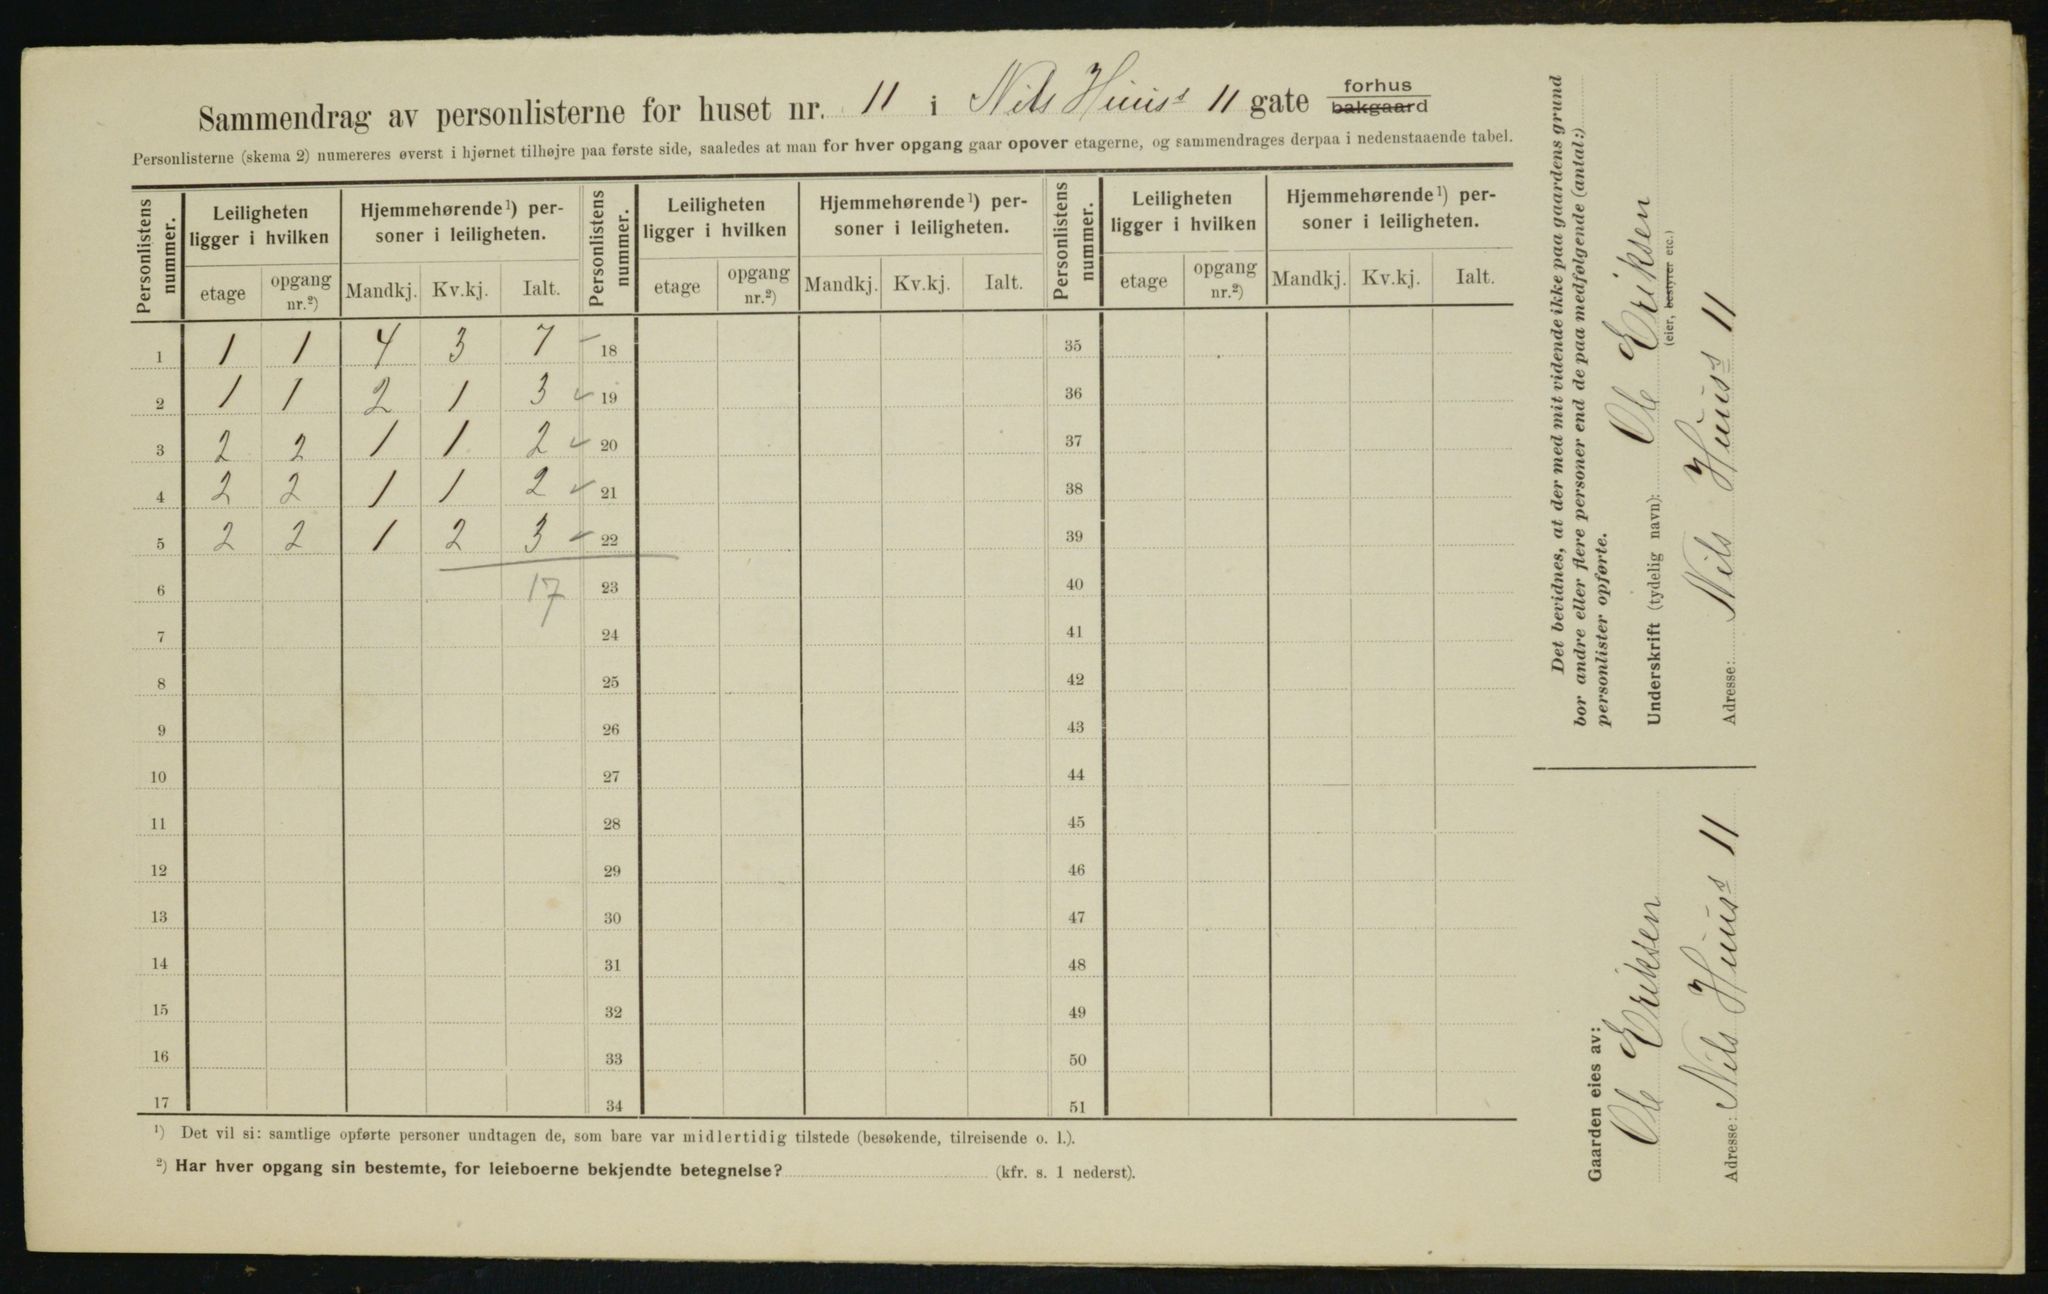 Sammendrag av personlisterne for huset nr. 11 i Nils Huus's 11 gate forhus bakgaard
Personlisterne (skema 2) numereres øverst i hjørnet tilhøjre paa første side, saaledes at man for hver opgang gaar opover etagerne, og sammendrages derpaa i nedenstaaende tabel.
Personlistens nummer. Leiligheten ligger i hvilken Hjemmehørende¹) personer i leiligheten. Personlistens nummer. Leiligheten ligger i hvilken Hjemmehørende¹) personer i leiligheten. Personlistens nummer. Leiligheten ligger i hvilken Hjemmehørende¹) personer i leiligheten.
etage opgang nr.²) Mandkj. Kv.kj. Ialt. etage opgang nr.²) Mandkj. Kv.kj. Ialt. etage opgang nr.²) Mandkj. Kv.kj. Ialt.
1 1 1 4 3 7 18 35
2 1 1 2 1 3 19 36
3 2 2 1 1 2 20 37
4 2 2 1 1 2 21 38
5 2 2 1 2 3 22 39
6 17 23 40
7 24 41
8 25 42
9 26 43
10 27 44
11 28 45
12 29 46
13 30 47
14 31 48
15 32 49
16 33 50
17 34 51
¹) Det vil si: samtlige opførte personer undtagen de, som bare var midlertidig tilstede (besøkende, tilreisende o. l.).
²) Har hver opgang sin bestemte, for leieboerne bekjendte betegnelse? (kfr. s. 1 nederst).
Det bevidnes, at der med mit vidende ikke paa gaardens grund
bor andre eller flere personer end de paa medfølgende (antal:)
personlister opførte.
Underskrift (tydelig navn): Ole Eriksen
(eier, bestyrer etc.)
Adresse: Nils Huus's 11
Gaarden eies av:
Ole Eriksen
Adresse: Nils Huus's 11